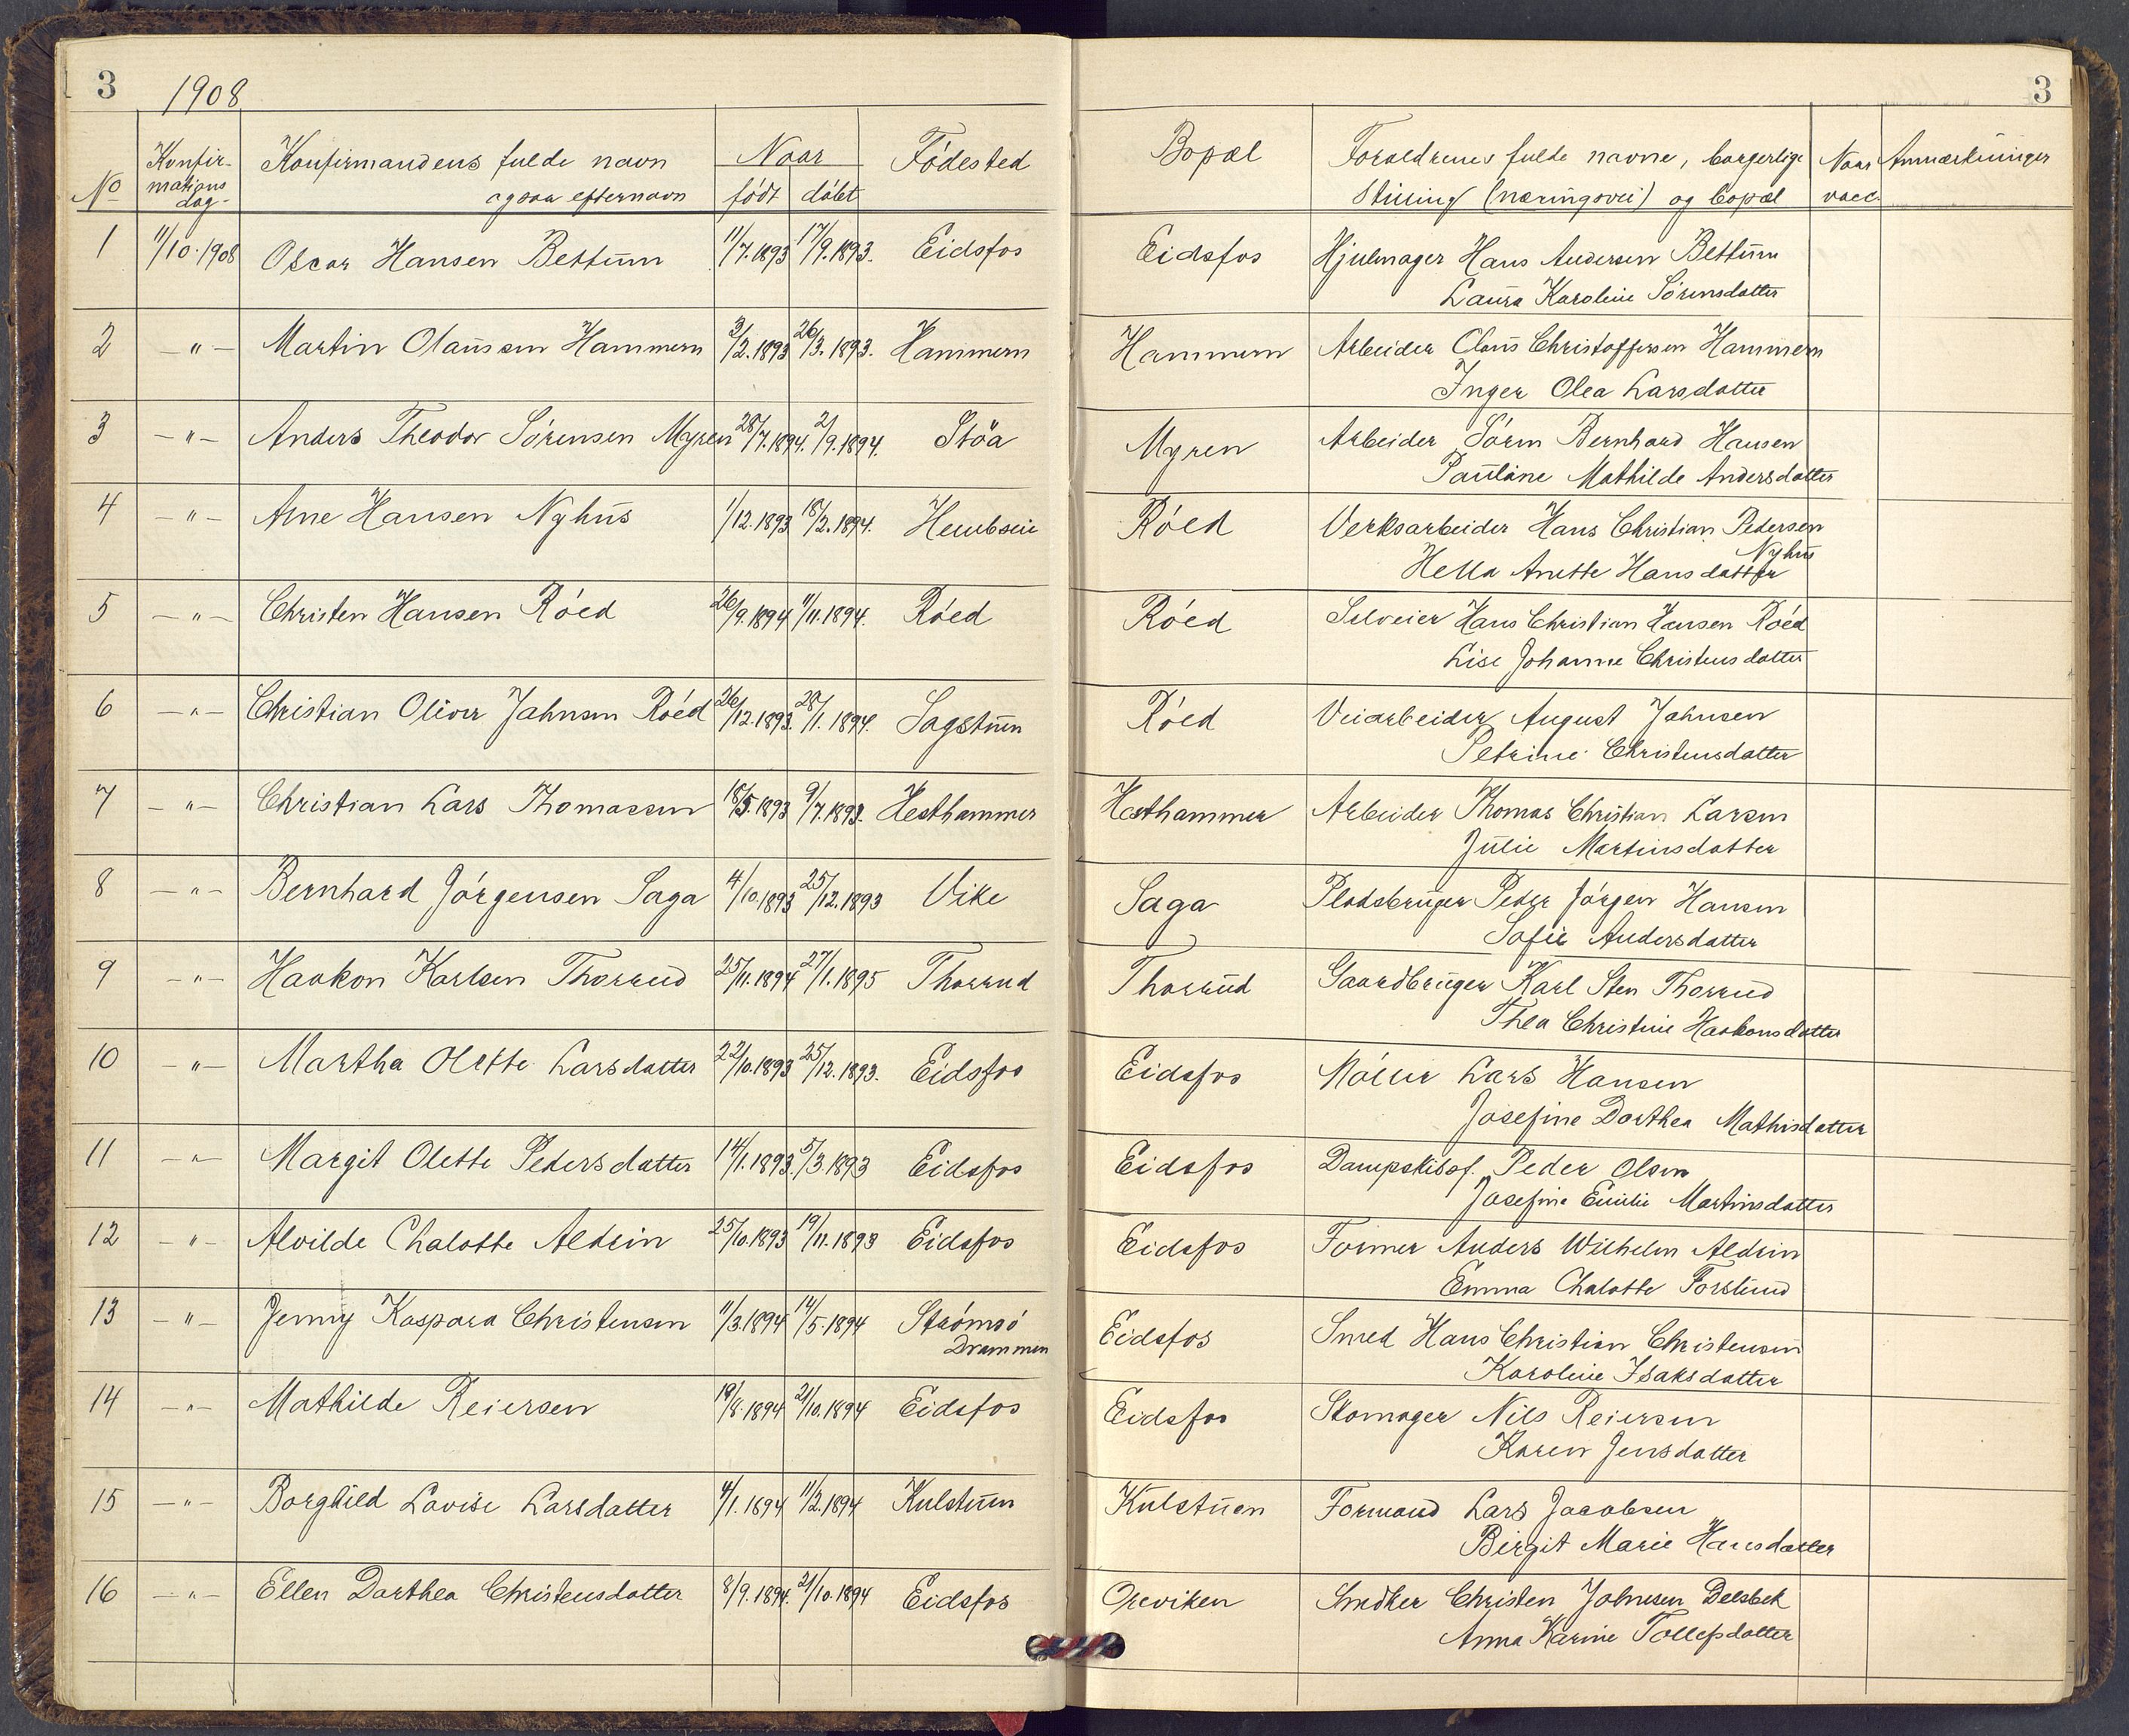 3 1908
No Konfirmations dag Konfirmandens fulde navn ogsaa efternavn Naar født døbt Fødested
1 11/10.1908 Oscar Hansen Bettum 11/7.1893 17/9.1893. Eidsfos
2 -"- Martin Olaussen Hammern 3/2.1893 26/3.1893. Hammern
3 -"- Anders Theodor Sørensen Myren 28/7.1894. 2/9.1894. Støa
4 -"- Arne Hansen Nyhus 1/12.1893 18/2.1894.
5 -"- Christen Hansen Røed 26/9.1894 11/11.1894. Røed
6 -"- Christian Oliver Jahnsen Røed 26/12.1893. 28/1.1894. Sagstuen
7 -"- Christian Lars Thomassen 18/5.1893 9/7.1893. Hesthammer
8 -"- Bernhard Jørgensen Saga 4/10.1893 25/12.1893 Vike
9 -"- Haakon Karlsen Thorrud 25/11.1894 27/1.1895 Thorrud
10 -"- Martha Olette Larsdatter 22/10.1893 25/12.1893. Eidsfos
11 -"- Margit Olette Pedersdatter 14/1.1893. 5/3.1893 Eidsfos
12 -"- Alvilde Chalotte Aldrin 25/10.1893 19/11.1893 Eidsfos
13 -"- Jenny Kaspara Christensen 11/3.1894 14/5.1894 Strømsø
Drammen
14 -"- Mathilde Reiersen 19/8.1894 21/10.1894 Eidsfos
15 -"- Borghild Lovise Larsdatter 4/1.1894 11/2.1894 Kulstuen
16 -"- Ellen Dorthea Christensdatter 8/9.1894. 21/10.1894 Eidsfos
3
Bopæl Forældrenes fulde navne, borgerlige Stilling (næringsvei) og bopæl Naar vacc. Anmærkninger
Eidsfos Hjulmager Hans Andersen Bettum
Laura Karoline Sørensdatter
Hammern Arbeider Olaus Christoffersen Hammern
Inger Olea Larsdatter
Myren Arbeider Søren Bernhard Hansen
Pauline Mathilde Andersdatter
Røed Verksarbeider Hans Christian Pedersen
Nyhus
Hella Anette Hansdatter
Røed Selveier Hans Christian Hansen Røed
Lise Johanne Christensdatter
Røed Veiarbeider August Jahnsen
Petrine Christensdatter
Hesthammer Arbeider Thomas Christian Larsen
Julie Martinsdatter
Saga Pladsbruger Peder Jørgen Hansen
Sofie Andersdatter
Thorrud Gaardbruger Karl Sten Thorrud
Thea Christine Haakonsdatter
Eidsfos Møller Lars Hansen
Josefine Dorthea Mathisdatter
Eidsfos Dampskibsf. Peder Olsen
Josefine Emilie Martinsdatter
Eidsfos Former Anders Wilhelm Aldrin
Emma Chalotte Forslund
Eidsfos Smed Hans Christian Christensen
Karoline Isaksdatter
Eidsfos Skomager Nils Reiersen
Karen Jensdatter
Kulstuen Formand Lars Jacobsen
Birgit Marie Hansdatter
Oreviken Snedker Christen Johnesen Delsbek
Anna Karine Tollefsdatter